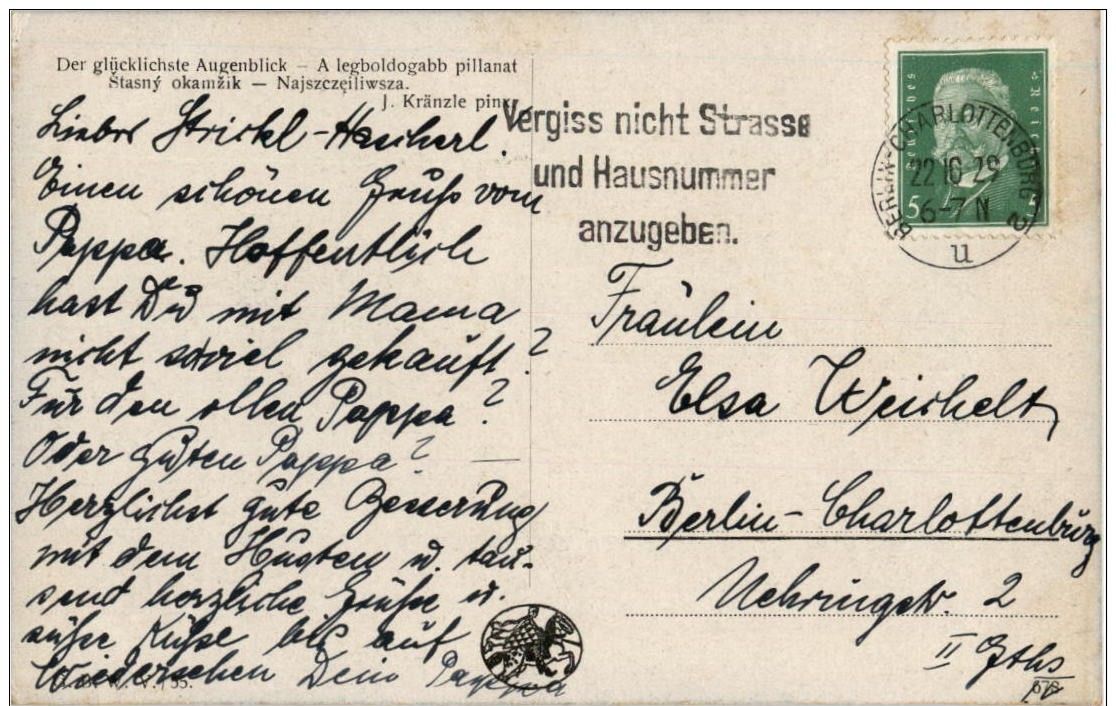 Der glücklichste Augenblick – A legboldogabb pillanat
Štasný okamžik — Najszczęiliwsza.
J. Kränzle pinx.
Liebes Strickl-Hascherl.
Einen schönen Gruß vom
Pappa. Hoffentlich
hast Du mit Mama
nicht soviel gekauft?
Für den ollen Pappa?
Oder guten Pappa?
Herzlichst gute Besserung
mit dem Husten u. tau-
send herzliche Grüße u.
süße Küße bis auf
Wiedersehen Dein Pappa
Vergiss nicht Strasse
und Hausnummer
anzugeben.
BERLIN-CHARLOTTENBURG 2
22 10 29
6-7 N
u
Deutsches Reich
5 5
Fräulein
Elsa Weichelt
Berlin-Charlottenburg
Nehringstr. 2
II Gths